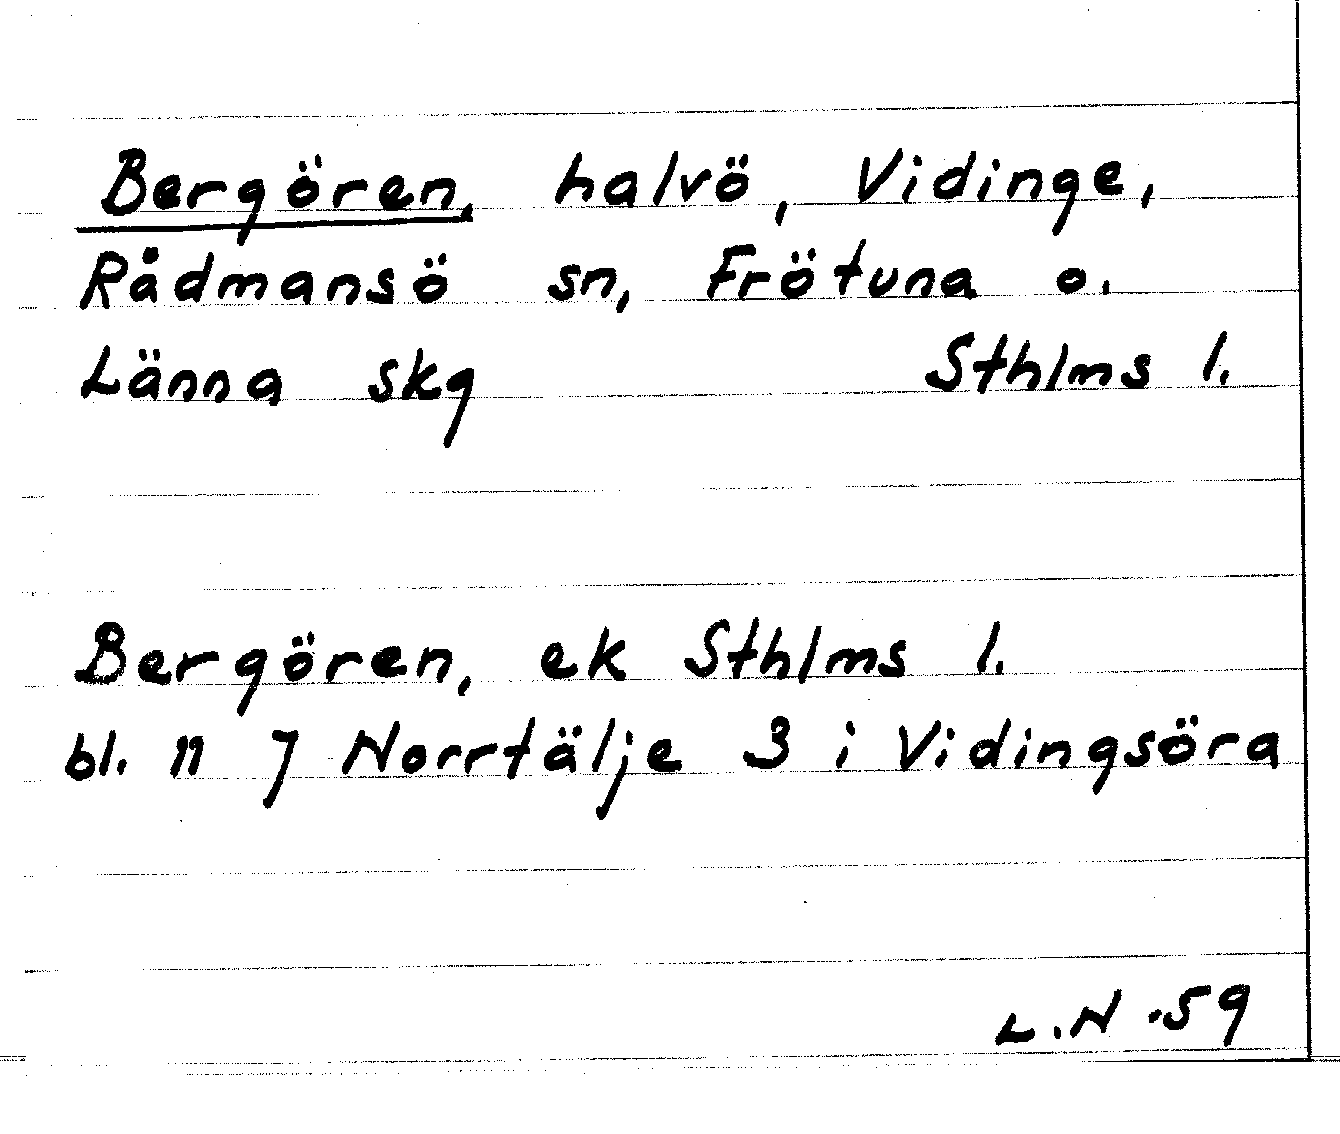 Bergören, halvö, Vidinge,
Rådmansö sn, Frötuna o.
Länna skg Sthlms l.
Bergören, ek Sthlms l.
bl. 11 J Norrtälje 3 i Vidingsöra
L.N -59